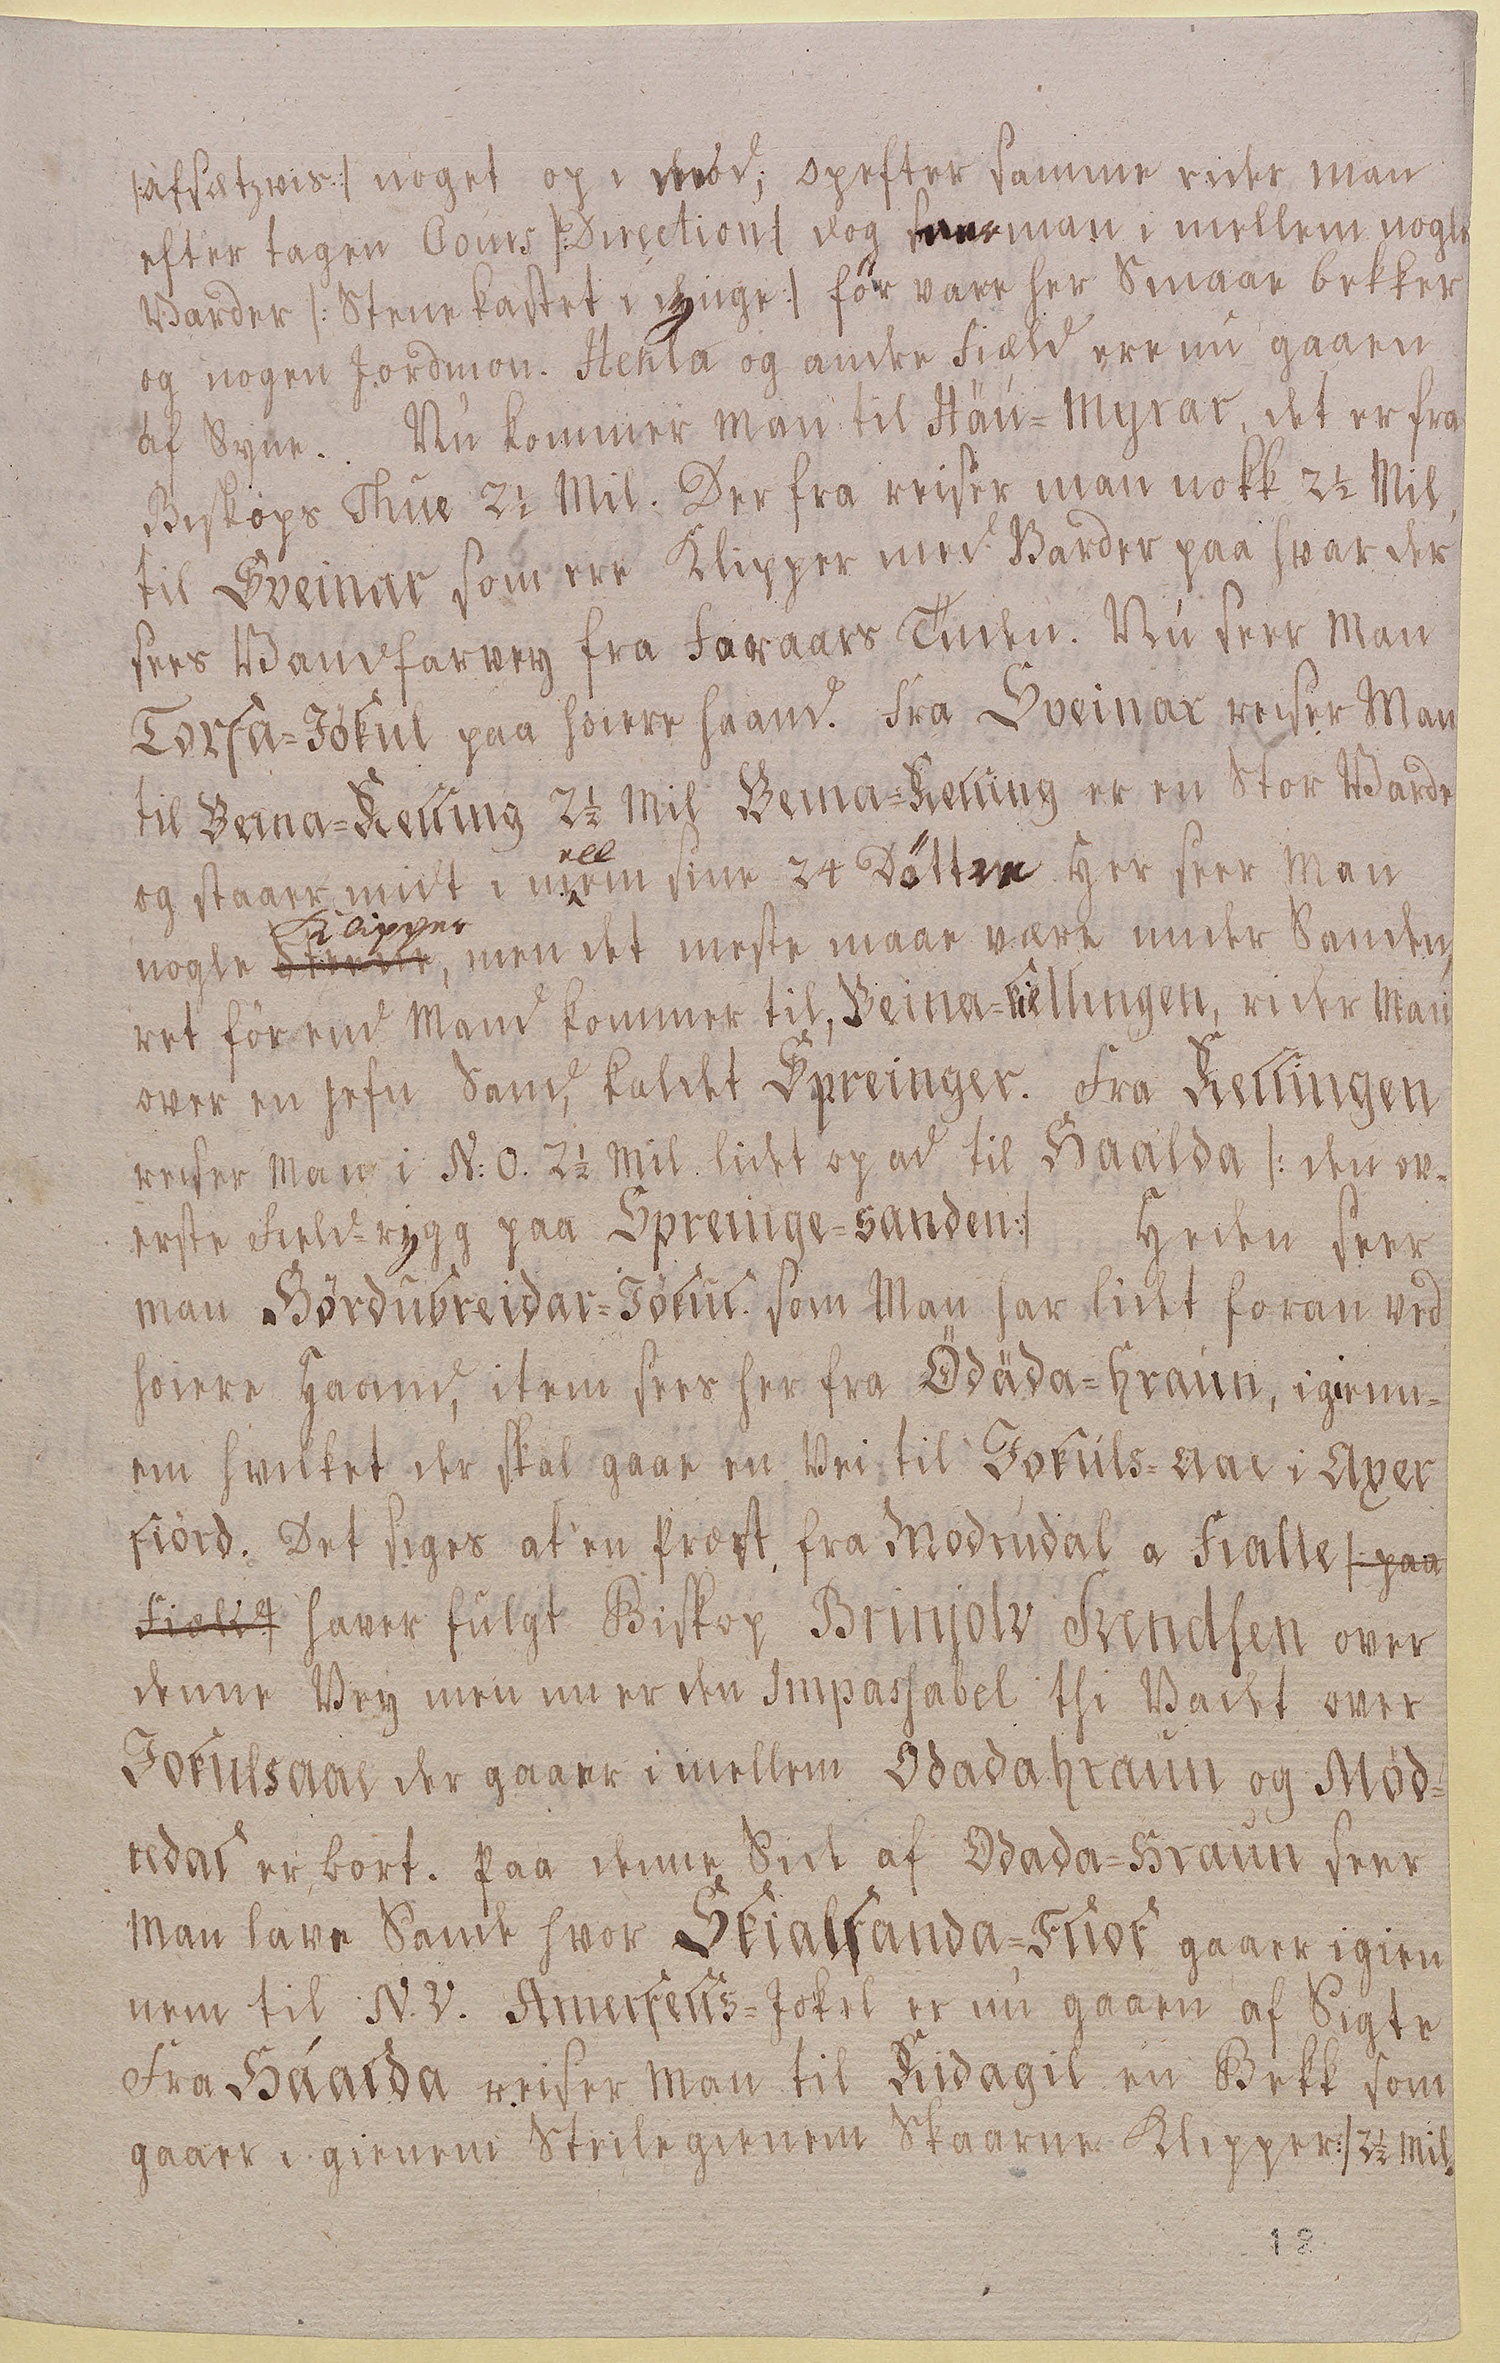 /:afsætzvis:/ noget op i med; opefter samme rider man
efter tagen Cours /:Direction/ dog seer man i mellem nogle
Varder /: Stene kastet i dynge:/ før vare her Smaae bekker
og nogen Jordmon. Hekla og andre Field ere nu gaaen
af Syne. Nu kommer Man til Háu=Myrar, det er fra
Biskops Thue 2½ Mil. Der fra reiser man nokk 2½ Mil,
til Sveinar som ere Klipper med Varder paa hvar der
sees Vandfarvey fra Faraars Tiiden. Nu seer Man
Torfa=Jökul paa høiere haand. Fra Sveinar reiser Man
til Beina=Kelling 2½ Mil Beina=Kelling er en Stor Varde
og staaer midt i mellem sine 24 Döttre Her seer Man
nogle Klipper, men det meste maae være under Sanden,
ret før end Mand kommer til, Beina=Kellingen, rider Man
over en jefn Sand, kaldet Spreinger. Fra Kellingen
reiser Man i N:O. 2½ Mil lidet op ad til Haalda /: den ov-
erste Field=rygg paa Spreinge=sanden:/ Heden seer
man Hördubreidar=Jökul. som Man har lidet foran ved
høiere Haand, item sees her fra Ödáda=hraun, igienn=
em hvilket der skal gaae en Vei til Jokuls=aae i Axer
fiörd. Det siges at en Præst, fra Modrudal a Fialle /: paa
Field:/ haver fulgt Biskop Brinjolv Svendsen over
denne Vey men nu er den Impassabel thi Vadet over
Jokulsaae der gaaer imellem Odadahraun og Mød=
redal er bort. Paa denne Side af Odada=Hraun seer
Man lave Sande hvor Skialfanda=Fliot gaaer igien
nem til N.V. Arnerfells=Jokel er nu gaaen af Sigte
Fra Háalda reiser Man til Kidagil en Bekk som
gaaer i gienem Steile gienem Skaarne Klipper:/ 2½ Mil.
18